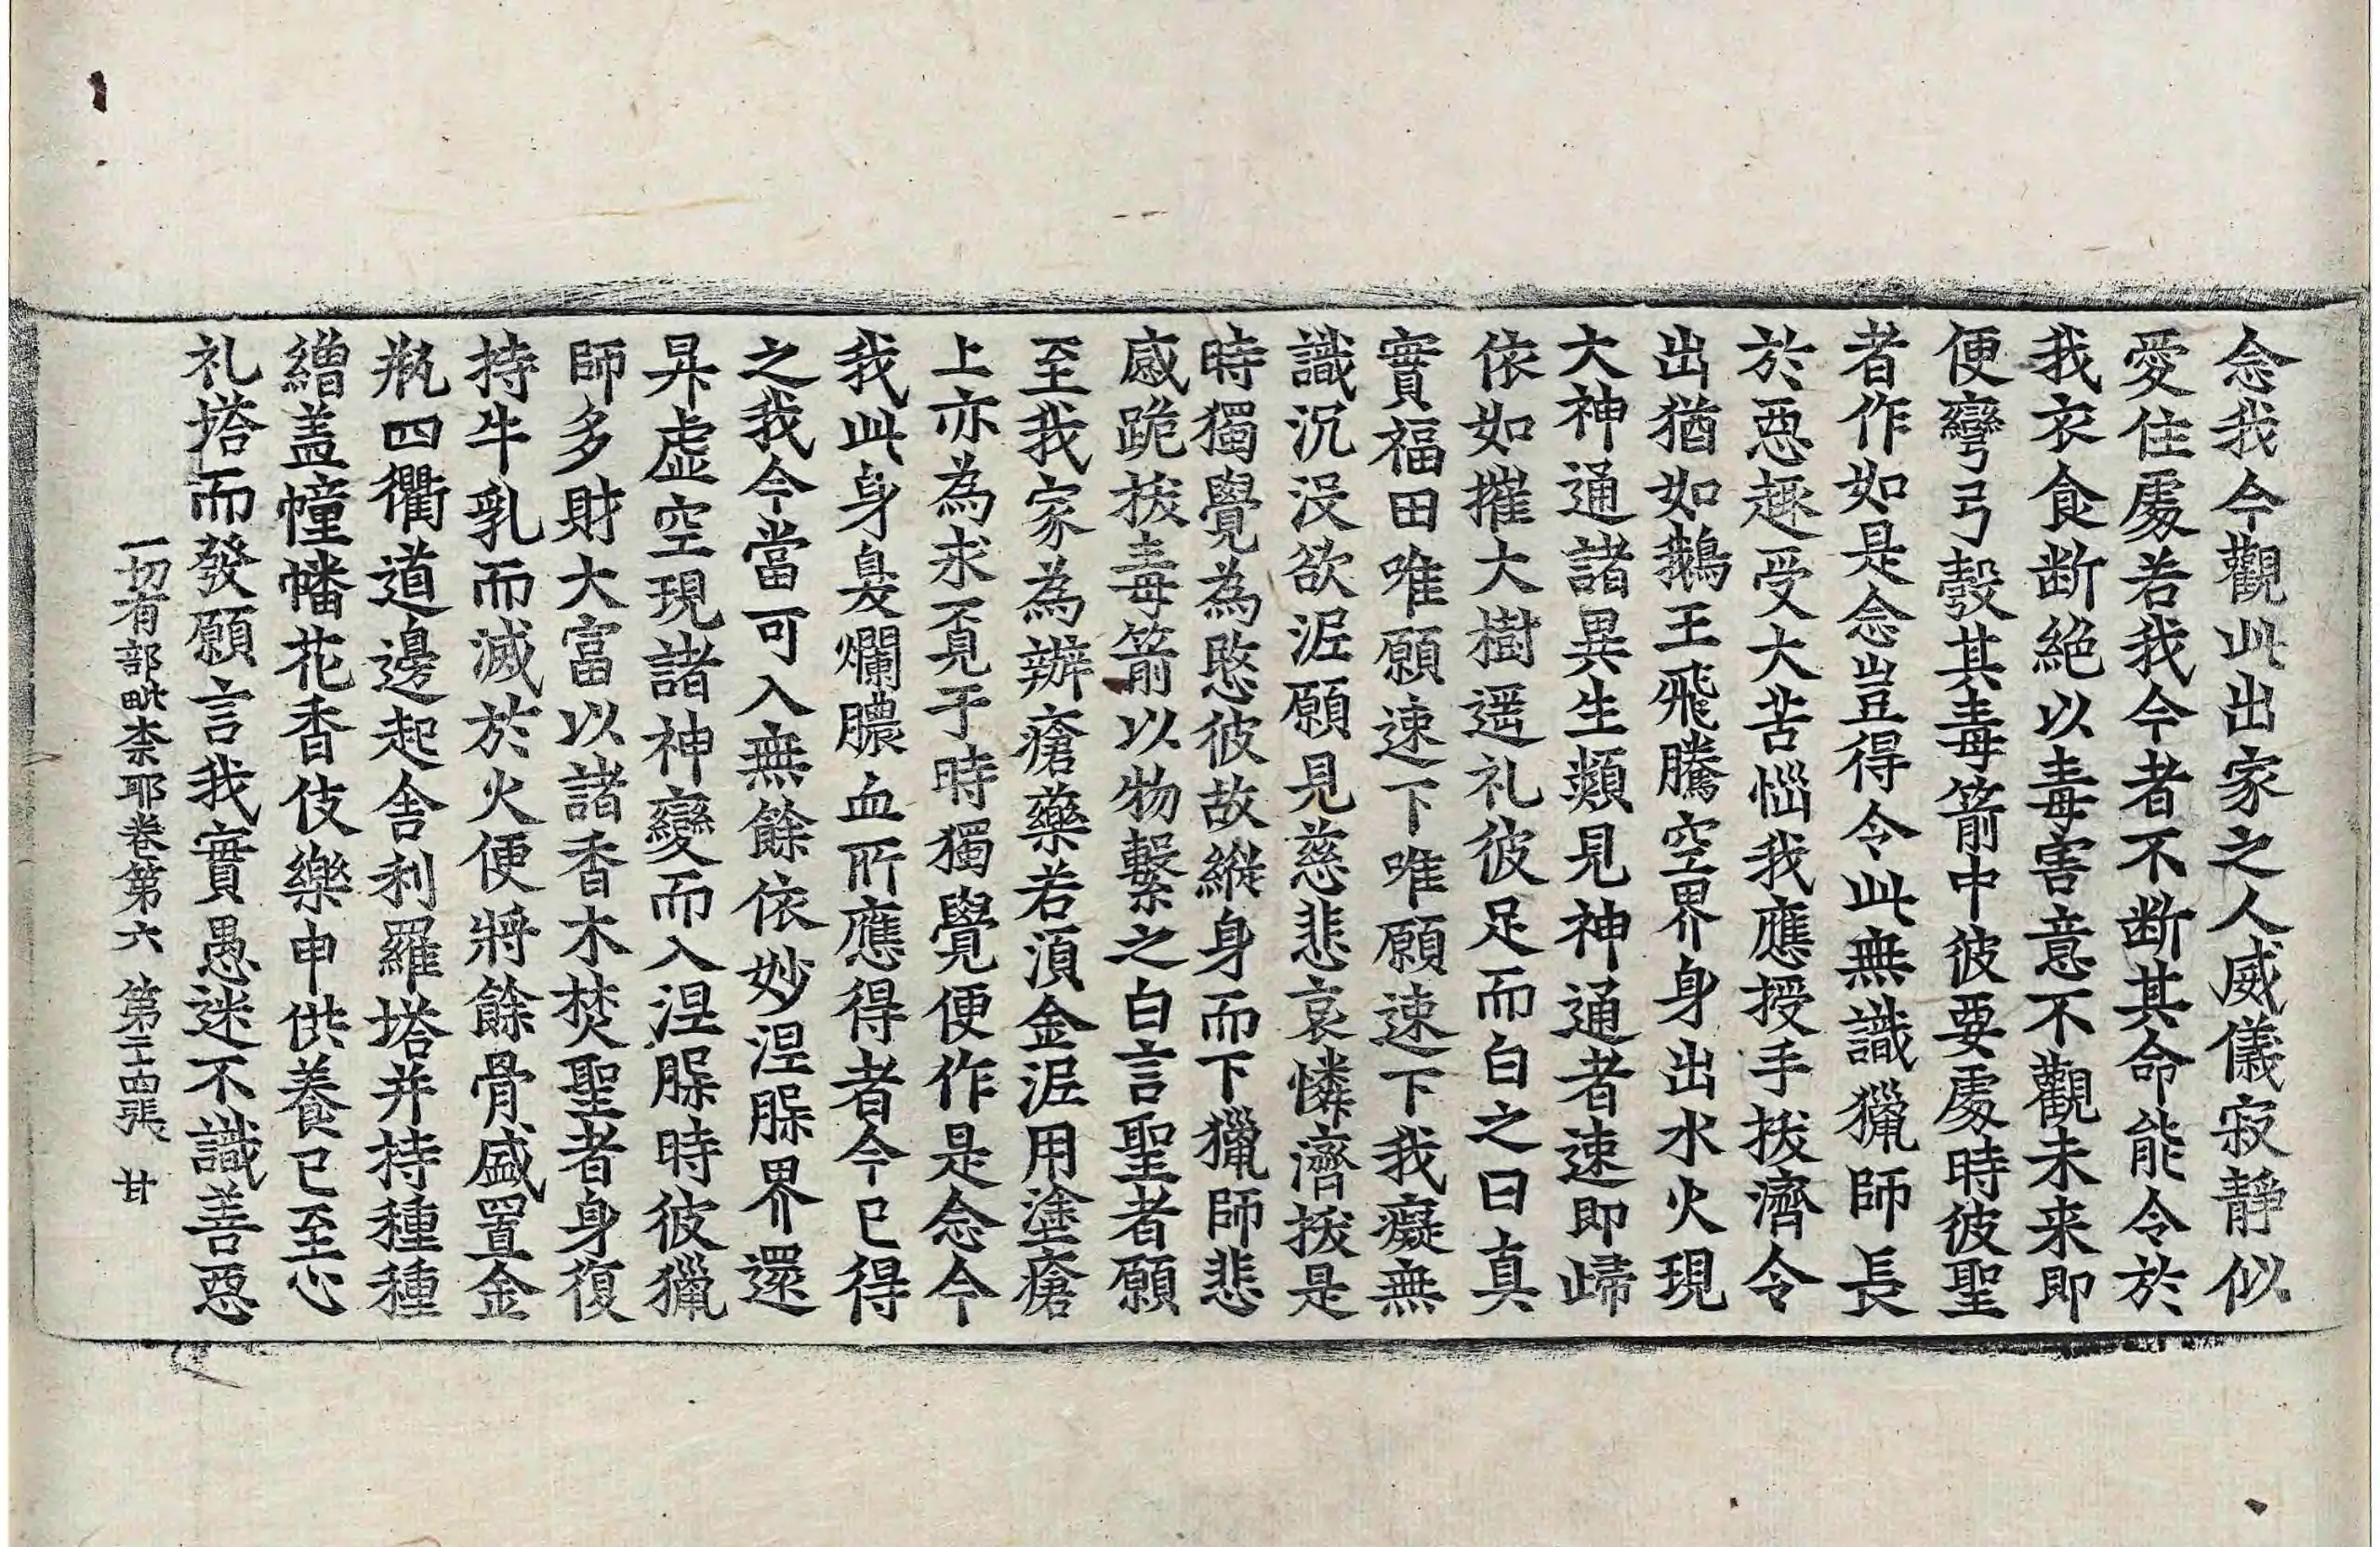 念我今觀此出家之人威儀寂靜似
愛住處若我今者不断其命能令於
我衣食断絶以毒害意不觀未来即
便彎弓彀其毒箭中彼要處時彼聖
者作如是念豈得令此無識獵師長
於惡趣受大苦惱我應授手拔濟令
出猶如鵝王飛騰空界身出水火現
大神通諸異生類見神通者速即歸
依如摧大樹遥礼彼足而白之曰真
實福田唯願速下唯願速下我癡無
識沉没欲泥願見慈悲哀憐濟拔是
時獨覺為愍彼故縱身而下獵師悲
慼跪拔毒箭以物繫之白言聖者願
至我家為辦瘡藥若湏金泥用塗瘡
上亦為求覔于時獨覺便作是念今
我此身臭爛膿血所應得者今已得
之我今當可入無餘依妙涅槃界還
昇虚空現諸神變而入涅槃時彼獵
師多財大富以諸香木焚聖者身復
持牛乳而滅於火便將餘骨盛置金
瓶四衢道邊起舍利羅塔并持種種
繒盖幢幡花香伎樂申供養已至心
礼塔而發願言我實愚迷不識善惡
一切有部毗柰耶卷第六 第二十四張 甘